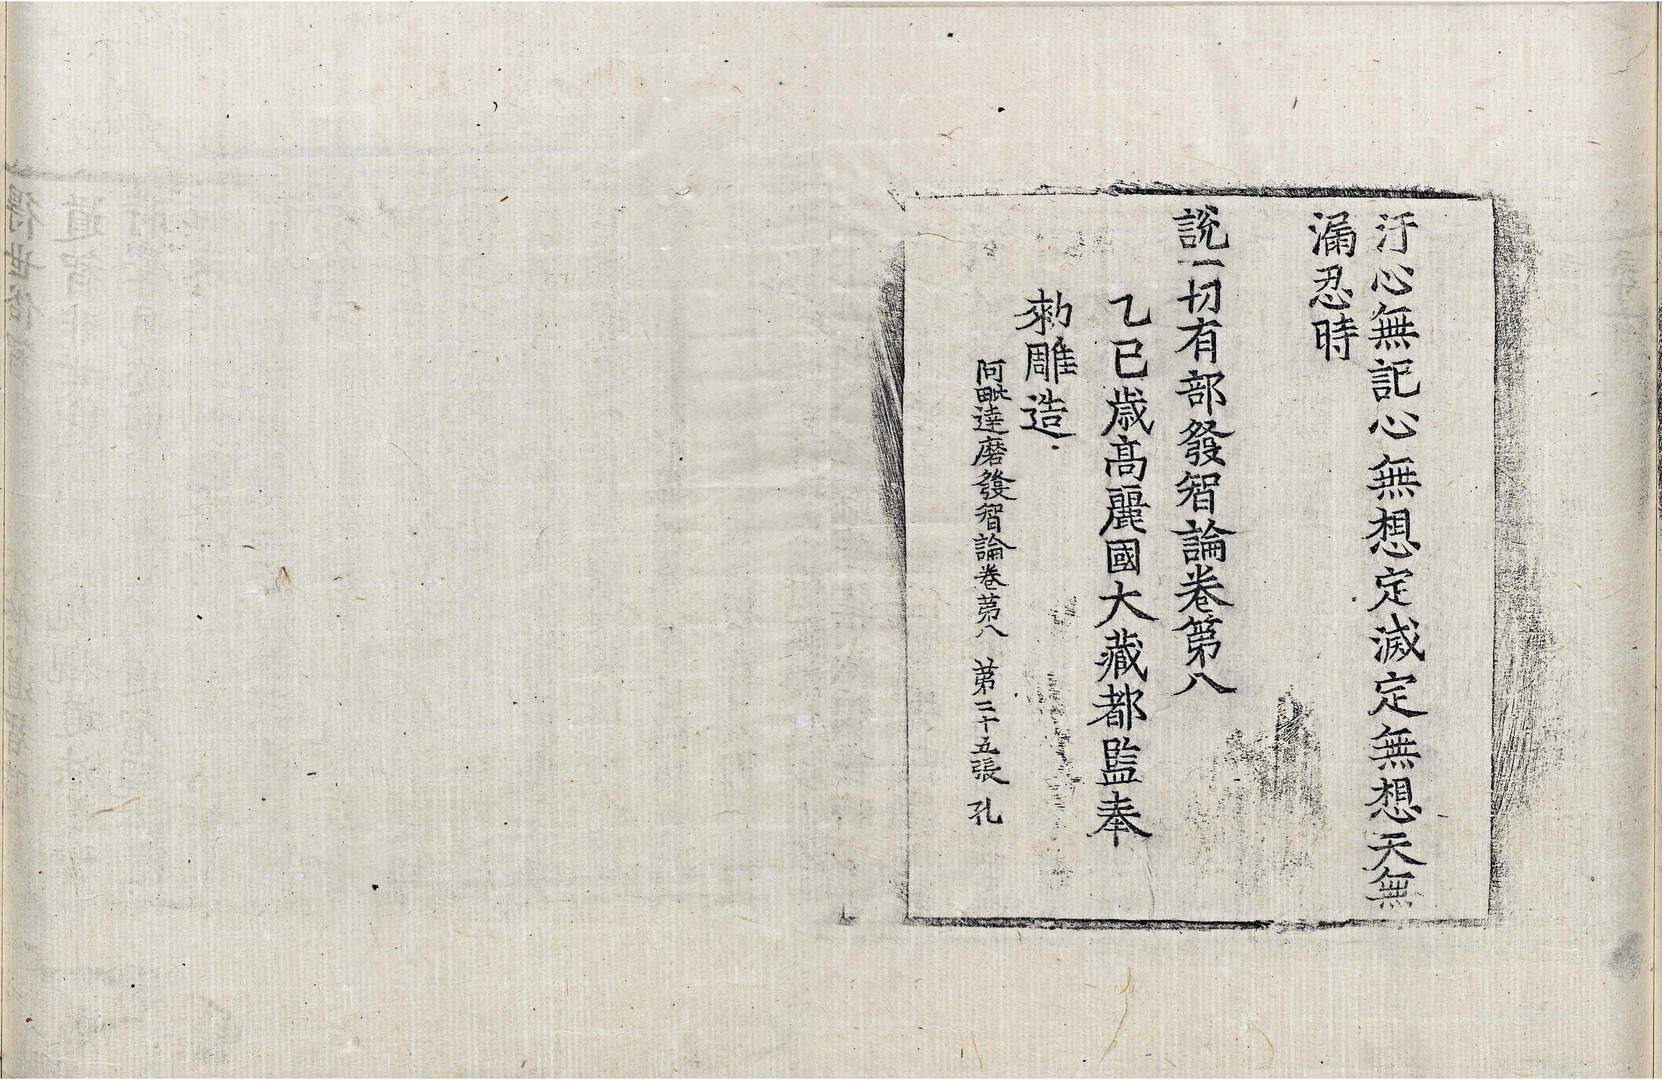 汙心無記心無想定滅定無想天無
漏忍時
說一切有部發智論卷第八
乙巳歳高麗國大藏都監奉
勑雕造
阿毗達磨發智論卷苐八 苐二十五張 孔